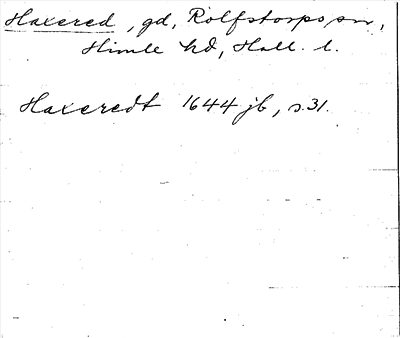 Haxered, gd, Rolfstorps sn,
Himle hd, Hall. l.
Haxeredt 1644 jb, s.31.